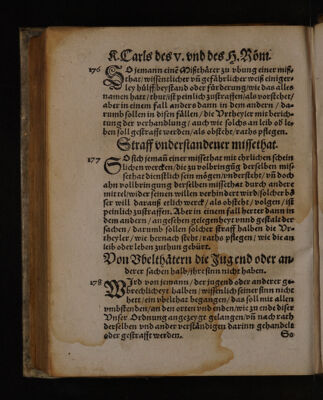 K. Carls des v. vnd des H. Röm.
176 SO jemann einē Mißthäter zu ubung einer miß-
sthat/ wissentlicher vñ gefährlicher weiß einiger-
ley hülff beystand oder fürderung/ wie das alles
namen hatt/ thut/ ist peinlich zustraffen/ als vorstehet/
aber in einem fall anders dann in dem andern / da-
rumb sollen in disen fällen / die Vrtheyler mit berich-
tung der verhandlung / auch wie solchs an leib oder le-
ben soll gestrafft werden/ als obsteht/ raths pflegen.
Straff vnderstandener missethat.
177 SO sich jemañ einer missethat mit ehrlichen schein
lichen wercken/ die zu volbringūg derselben mis-
sethat dienstlich sein mögen/ vndersteht/ vñ doch
ahn vollbringung derselben missethat durch andere
mittel/ wider seinen willen verhindert wird/ solcher bö
ser will darauß etlich werck/ als obsteht/ volgen / ist
peinlich zustraffen. Aber in einem fall herter dann in
dem andern / angesehen gelegenheyt vnnd gestalt der
sachen / darumb sollen solcher straff halben die Vr-
theyler / wie hernach steht/ raths pflegen / wie die an
leib oder leben zuthun gebürt.
Von Vbelthätern die Jugend oder an-
derer sachen halb/ ihre sinn nicht haben.
178 WIrd von jemann/ der jugend oder anderer ge-
brechlicheyt halben/ wissenlich seiner sinn nicht
hett/ ein ubelthat begangen/ das soll mit allen
umbstenden/ an den orten vnd enden/ wie zu ende diser
Vnser Ordnung angezeygt gelangen/ vñ nach rath
derselben vnd ander verständigen darinn gehandelt
oder gestrafft werden.
So